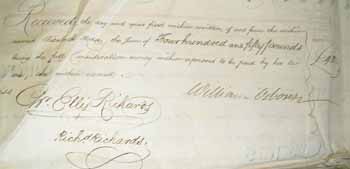 Received the day and year first within written of and from the within
named Elizabeth the Sum of Four hundred and fifty pounds
being the full Consideration money within expressed to be paid by her to
me, as within mentd.
£450
William
Ellis Rikards
Richd Richards.